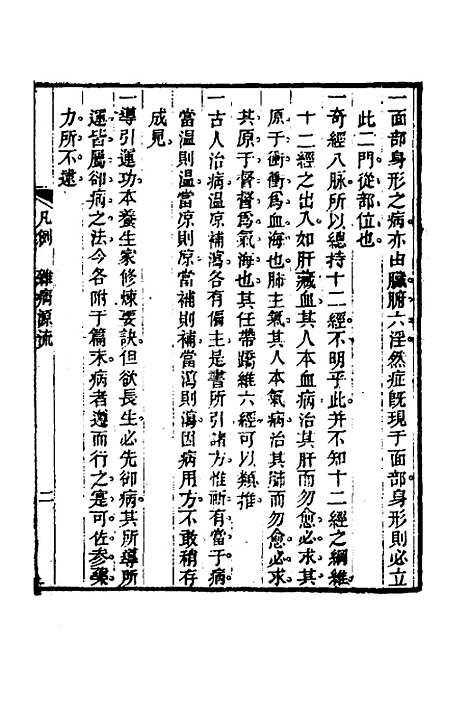 一面部身形之病亦由臟腑六淫然症旣現于面部身形則必立
此二門從部位也
一奇經八脉所以總持十二經不明乎此并不知十二經之綱維
十二經之出入如肝藏血其人本血病治其肝而勿愈必求其
原于衝衝爲血海也如肺主氣其人本氣病治其肺而勿愈必求
其原于督督爲氣海也其任帶蹻維六經可以類推
一古人治病温凉補瀉各有偏主是書所引諸方惟斷有當于病
當温則温當凉則凉當補則補當瀉則瀉因病用方不敢稍存
成見
一導引運功本養生家修煉要訣但欲長生必先卻病其所導所
運皆屬卻病之法今各附于篇末病者遵而行之寔可佐參藥
力所不逮
凡例 雜病源流 二